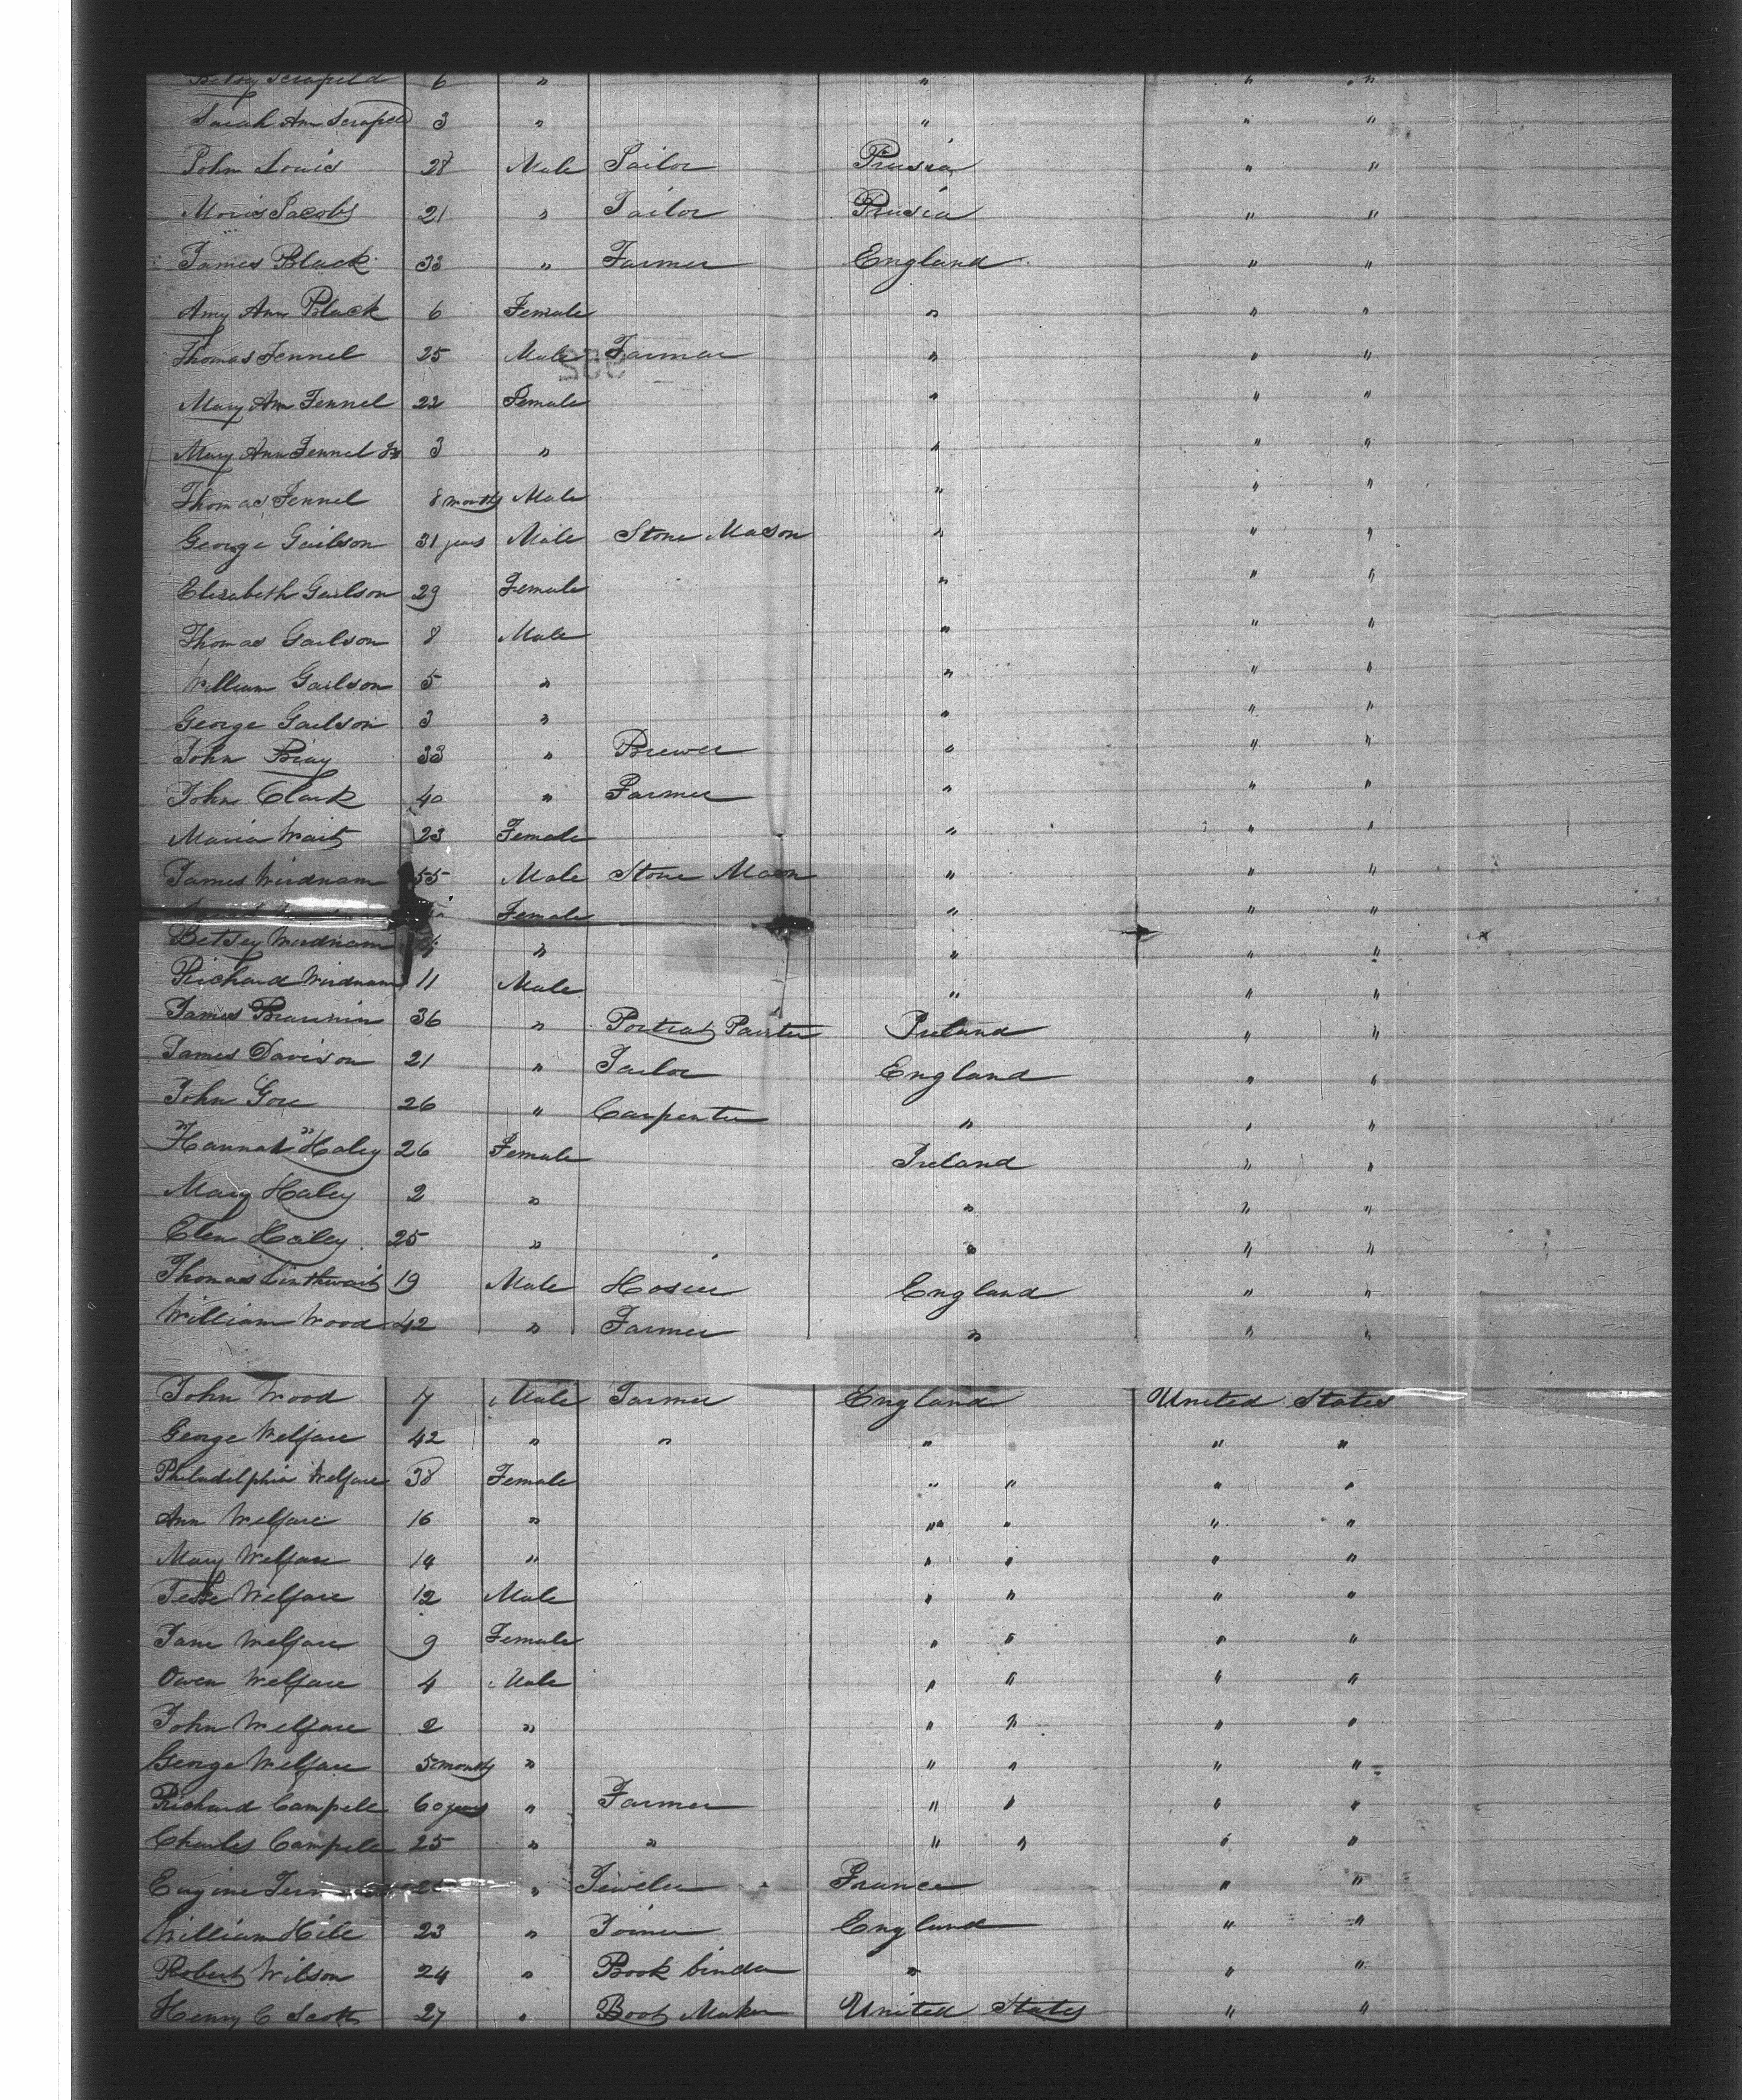 Betsy Scrapeld 6 " " " "
Sarah Ann Scrapeld 3 " " " "
John Louis 28 Male Sailor Prusia " "
Moris Jacobs 21 " Tailor Prusia " "
James Black 33 " Farmer England " "
Amy Ann Black 6 Female " " "
Thomas Fennel 25 Male Farmer " " "
Mary Ann Fennel 22 Female " " "
Mary Ann Fennel Jr 3 " " " "
Thomas Fennel 8 months Male " " "
George Gailson 31 years Male Stone Mason " " "
Elizabeth Gailson 29 Female " " "
Thomas Gailson 8 Male " " "
William Gailson 5 " " " "
George Gailson 3 " " " "
John Bray 33 " Brewer " " "
John Clark 40 " Farmer " " "
Maria Wait 23 Female " " "
James Windnam 55 Male Stone Mason " " "
Female " " "
Betsey Windnam " " " "
Richard Windnam 11 Male " " "
James Braunin 36 " Portrat Painter Ireland " "
James Davison 21 " Tailor England " "
John Gore 26 " Carpenter " " "
Hannah Haley 26 Female Ireland " "
Mary Haley 2 " " " "
Elen Hailey 25 " " " "
Thomas Linthwait 19 Male Hosier England " "
William Wood 42 " Farmer " " "
John Wood 7 Male Farmer England United States
George Welfare 42 " " " " "
Philadelphia Welfare 38 Female " " " "
Ann Welfare 16 " " " " "
Mary Welfare 14 " " " " "
Jesse Welfare 12 Male " " " "
Jane Welfare 9 Female " " " "
Owen Welfare 4 Male " " " "
John Welfare 2 " " " " "
George Welfare 5 months " " " " "
Richard Campell 60 years " Farmer " " " "
Charles Campell 25 " " " " " "
Eugine " Jeweler France " "
William Hill 23 " Joiner England " "
Robert Wilson 24 " Book binder " " "
Henry C Scott 27 " Boot Maker United States " "